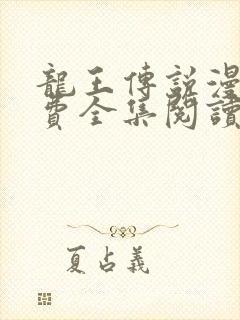 龍王傳說漫
費全集閱讀
夏占義